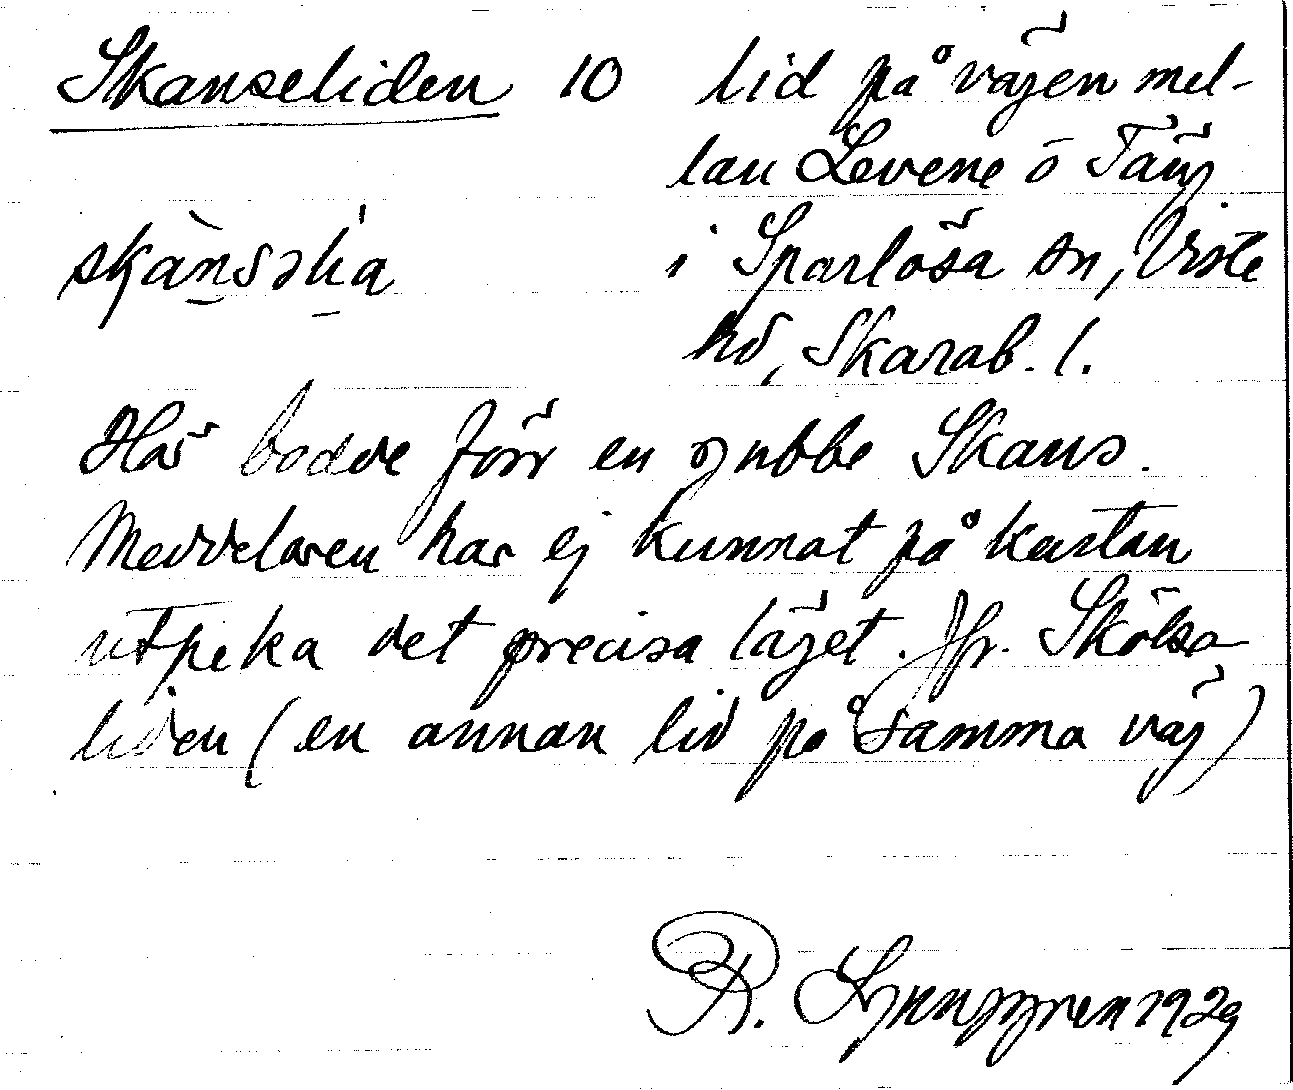 Skanseliden 10 lid på vägen mel-
lan Levene ö Täng
i Sparlösa sn, Viste
hd, Skarab. l.
Här bodde förr en gubbe Skans.
Meddelaren har ej kunnat på kartan
utpeka det precisa läget. Jfr. Skölsa
liden (en annan lid på samma väg)
R. Ljunggren 1929